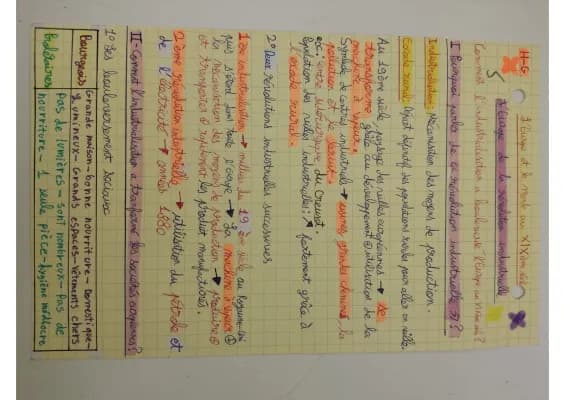 H-G
L'Europe et le monde au XIXème siècle
L'Europe de la révolution industrielle
Comment l'industrialisation a bouleversé l'Europe au XIXème siècle?
I Pourquoi parler de révolution industrielle?
Industrialisation: Mécanisation des moyens de production.
Exode rural: Départ définitif des populations rurales pour aller en ville.
Au 19ème siècle, paysage des villes européennes → se
transforme grâce au développement utilisation de la
machine à vapeur.
Symbole de centres industriels → usines, grandes cheminées, la
pollution et le bruit.
ex: Centre sidérurgique du Creusot.
Population des villes industrielles: ↗ fortement grâce à
l'exode rural.
2° Deux révolutions industrielles successives
1ère industrialisation → milieu du 18ème siècle au Royaume-Uni
puis s'étend dans toute l'Europe → La machine à vapeur
la mécanisation des moyens de production → produire
et transporter rapidement les produits manufacturés.
2ème révolution industrielle → utilisation du pétrole et
de l'électricité → années 1880
II- Comment l'industrialisation a transformé les sociétés européennes?
1° Les bouleversements sociaux
Bourgeois Grande maison- bonne nourriture- Domestique-
Lumineux- Grands espaces- Vêtements chers
Prolétaires Pas de lumières- sont nombreux- Pas de
nourriture- 1 seule pièce- hygiène médiocre